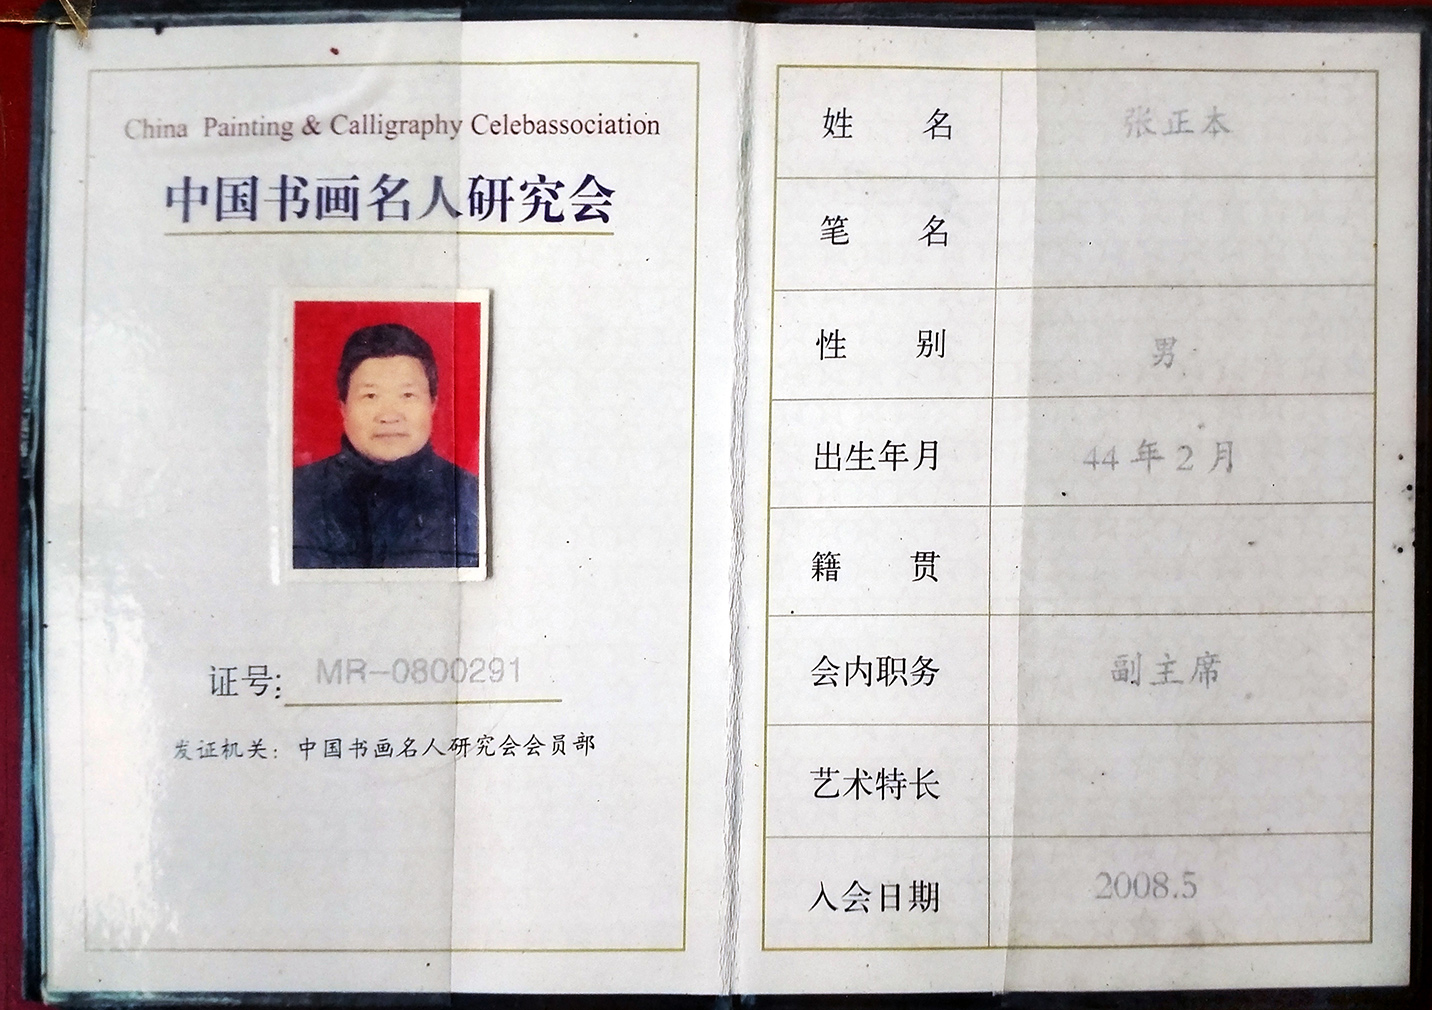 China Painting & Calligraphy Celebassociation
中国书画名人研究会
证号: MR-0800291
发证机关：中国书画名人研究会会员部
姓名 张正本
笔名
性别 男
出生年月 44年2月
籍贯
会内职务 副主席
艺术特长
入会日期 2008.5